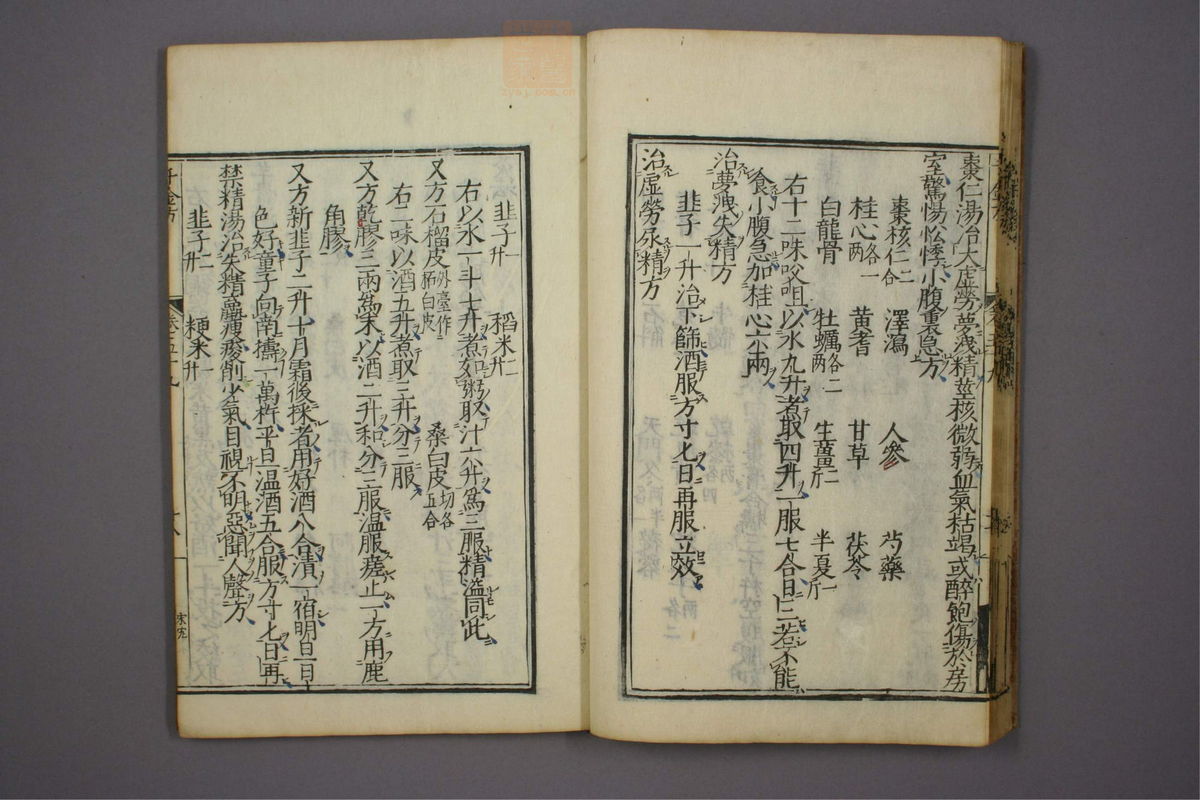 棗仁湯治大虛勞夢洩精莖核微弱血氣枯竭或醉飽傷於房
室驚惕忪悸小腹裏急方
棗核仁二合 澤瀉 人參 芍藥
桂心各一兩 黃耆 甘草 茯苓
白龍骨 牡蠣各二兩 生薑二斤 半夏一斤
右十二味㕮咀以水九升煮取四升一服七合日三若不能
食小腹急加桂心六兩
治夢洩失精方
韭子一升治下篩酒服方寸匕日再服立效
治虛勞尿精方
韭子二升 稻米三升
右以水一斗七升煮如粥取汁六升爲三服精溢同此
又方石榴皮外臺作柘白皮 桑白皮切各五合
右二味以酒五升煮取三升分三服
又方乾膠三兩爲末以酒二升和分三服溫服瘥止一方用鹿
角膠
又方新韭子二升十月霜後採者用好酒八合漬一宿明旦日
色好童子向南擣一萬杵平旦溫酒五合服方寸匕日再
禁精湯治失精羸瘦痠削少氣目視不明惡聞人聲方
韭子二升 粳米一升